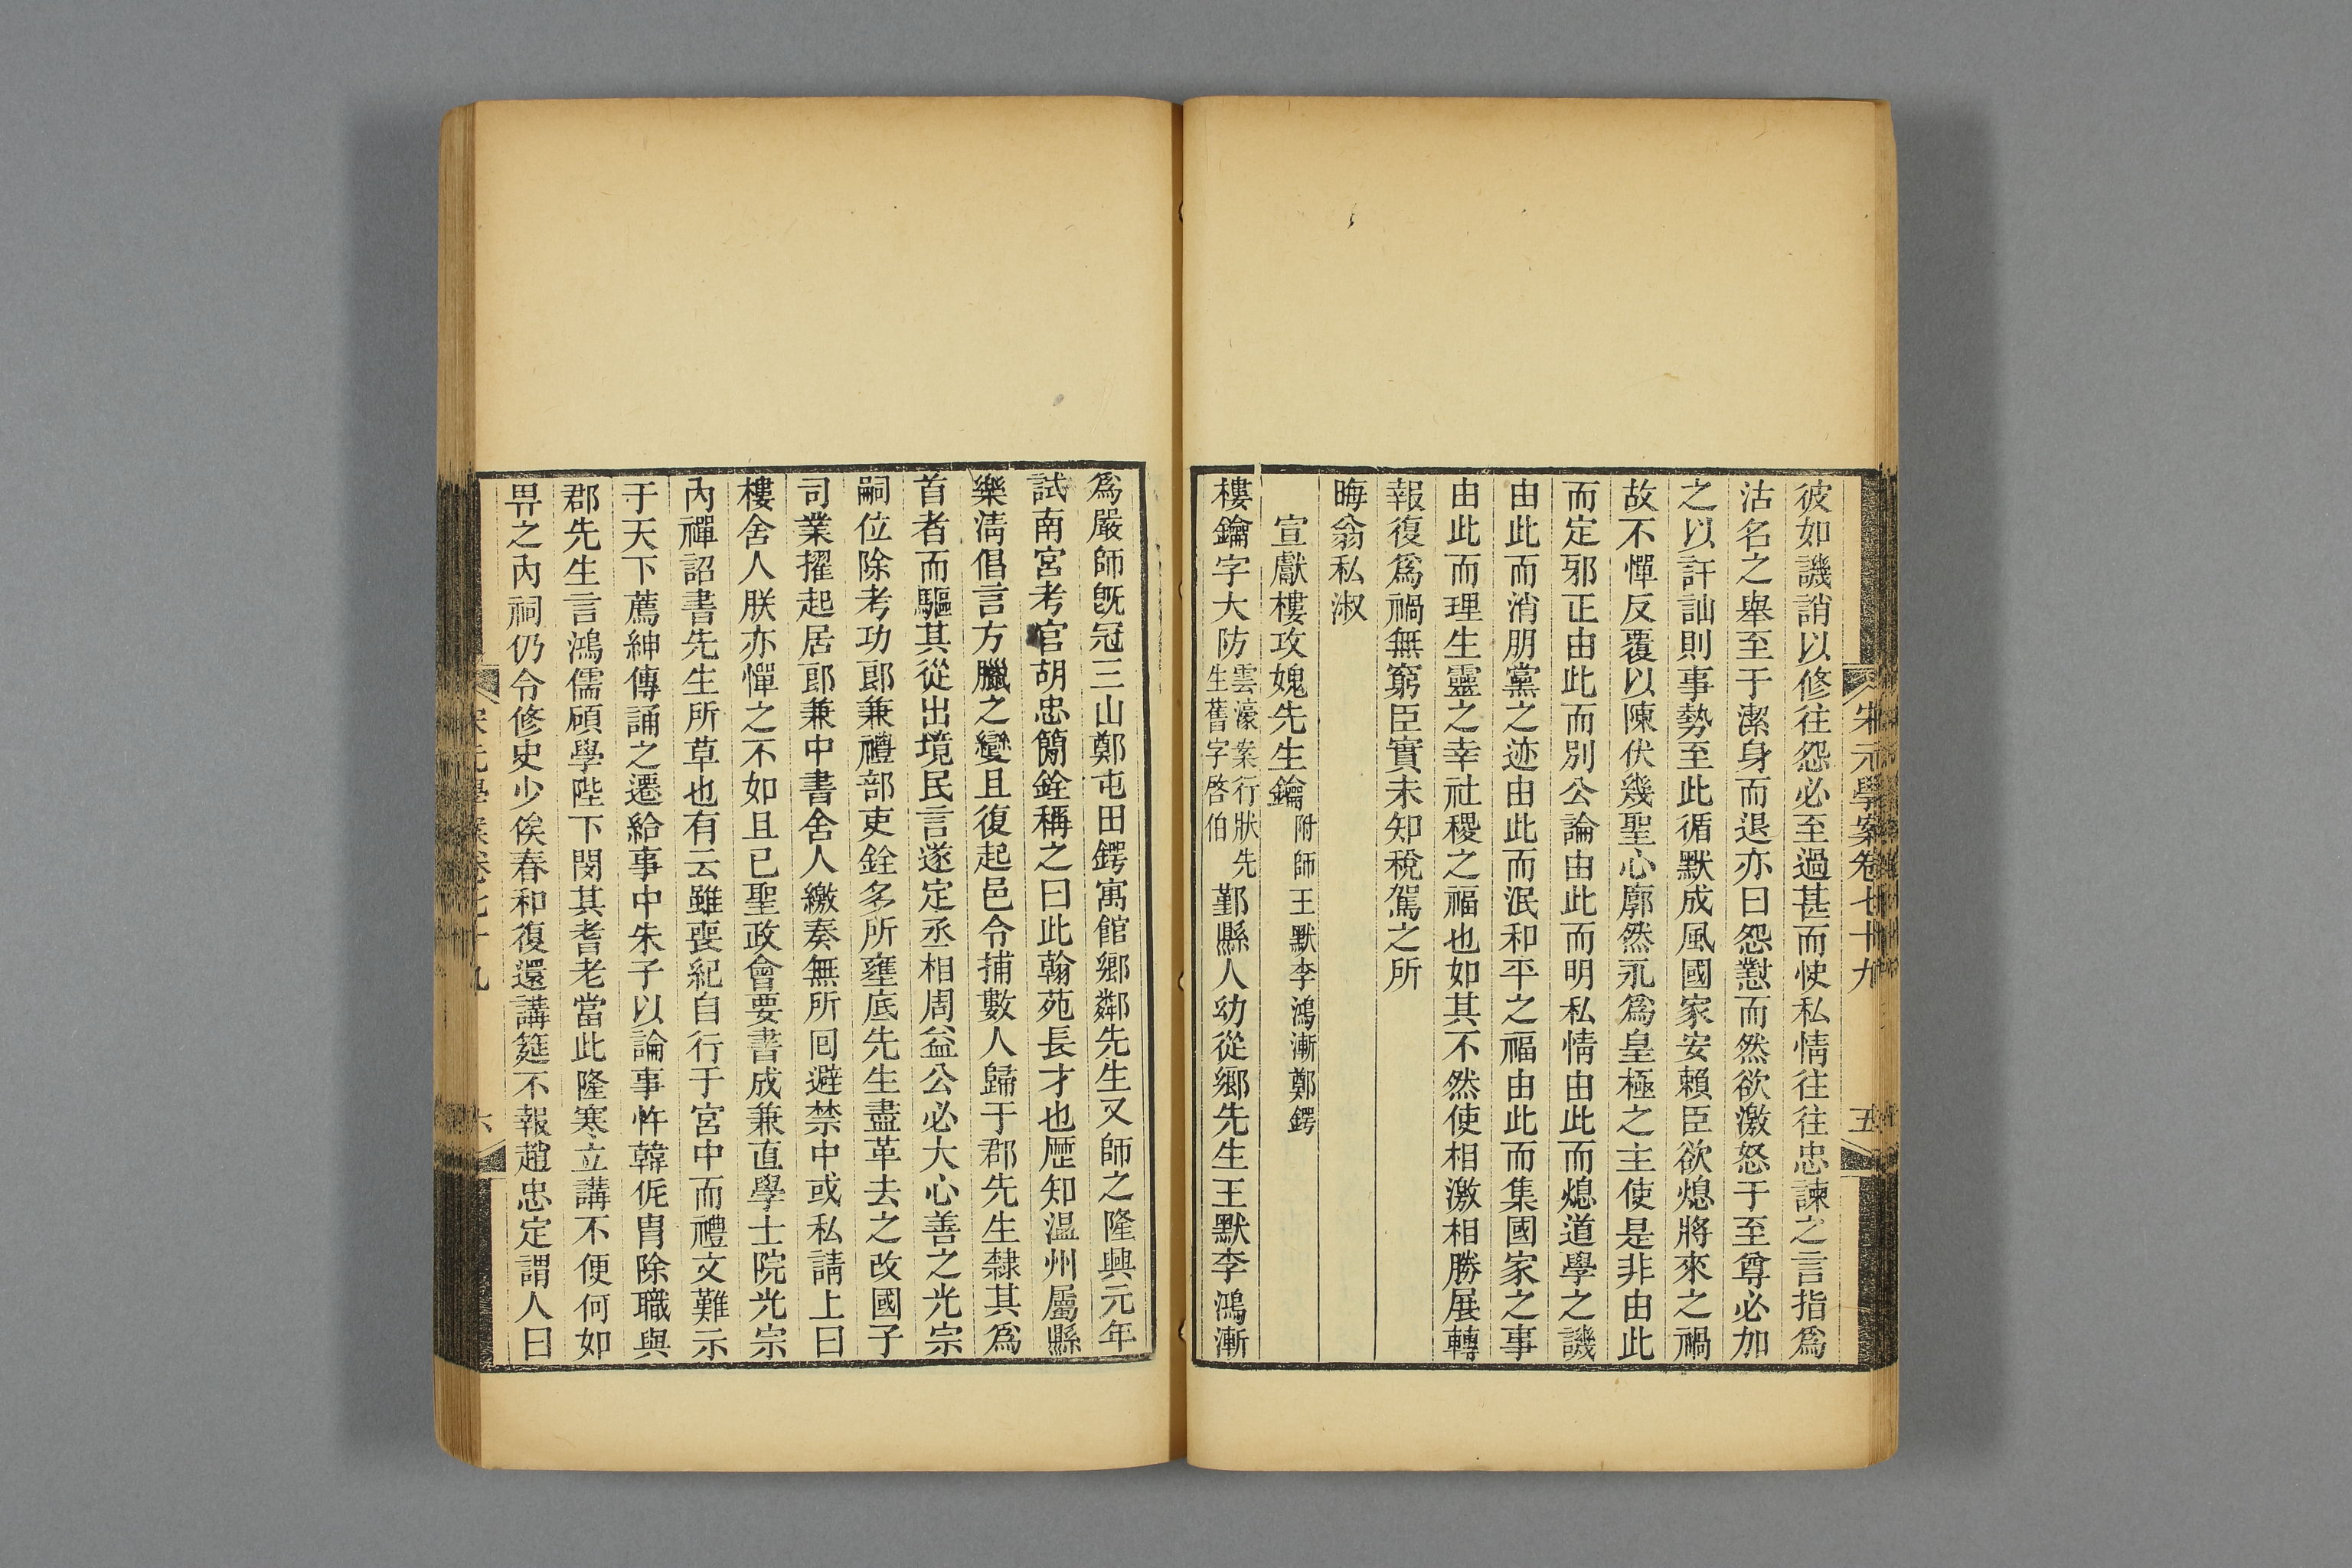 宋元學案卷七十九
五
彼如譏誚以修往怨必至過甚而使私情往往忠諫之言指爲
沽名之舉至于潔身而退亦曰怨懟而然欲激怒于至尊必加
之以訐訕則事勢至此循默成風國家安賴臣欲熄將來之禍
故不憚反覆以陳伏幾聖心廓然永爲皇極之主使是非由此
而定邪正由此而別公論由此而明私情由此而熄道學之譏
由此而消朋黨之迹由此而泯和平之福由此而集國家之事
由此而理生靈之幸社稷之福也如其不然使相激相勝展轉
報復爲禍無窮臣實未知稅駕之所
晦翁私淑
宣獻樓攻媿先生鑰附師王默李鴻漸鄭鍔
樓鑰字大防雲濠案行狀先生舊字啓伯鄞縣人幼從鄉先生王默李鴻漸
爲嚴師旣冠三山鄭屯田鍔寓館鄉鄰先生又師之隆興元年
試南宮考官胡忠簡銓稱之曰此翰苑長才也歷知温州屬縣
樂淸倡言方臘之變且復起邑令捕數人歸于郡先生隸其爲
首者而驅其從出境民言遂定丞相周益公必大心善之光宗
嗣位除考功郎兼禮部吏銓多所壅底先生盡革去之改國子
司業擢起居郎兼中書舍人繳奏無所回避禁中或私請上曰
樓舍人朕亦憚之不如且已聖政會要書成兼直學士院光宗
內禪詔書先生所草也有云雖喪紀自行于宮中而禮文難示
于天下薦紳傳誦之遷給事中朱子以論事忤韓侂胄除職與
郡先生言鴻儒碩學陛下閔其耆老當此隆寒立講不便何如
畀之內祠仍令修史少俟春和復還講筵不報趙忠定謂人曰
宋元學案卷七十九
六